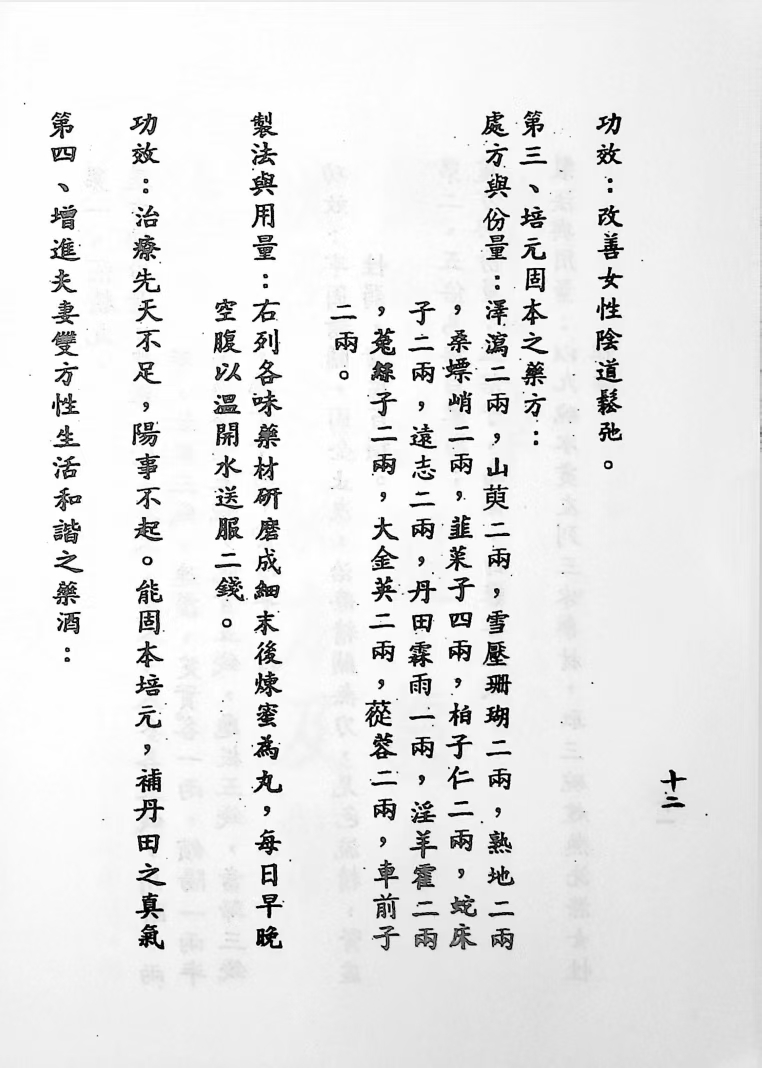 十二
功效：改善女性陰道鬆弛。
第三、培元固本之藥方：
處方與份量：澤瀉二兩，山萸二兩，雪壓珊瑚二兩，熟地二兩
，桑螵峭二兩，韮菜子四兩，柏子仁二兩，蛇床
子二兩，遠志二兩，丹田霖雨一兩，淫羊霍二兩
，菟絲子二兩，大金英二兩，蓯蓉二兩，車前子
二兩。
製法與用量：右列各味藥材研磨成細末後煉蜜為丸，每日早晚
空腹以溫開水送服二錢。
功效：治療先天不足，陽事不起。能固本培元，補丹田之真氣
第四、增進夫妻雙方性生活和諧之藥酒：